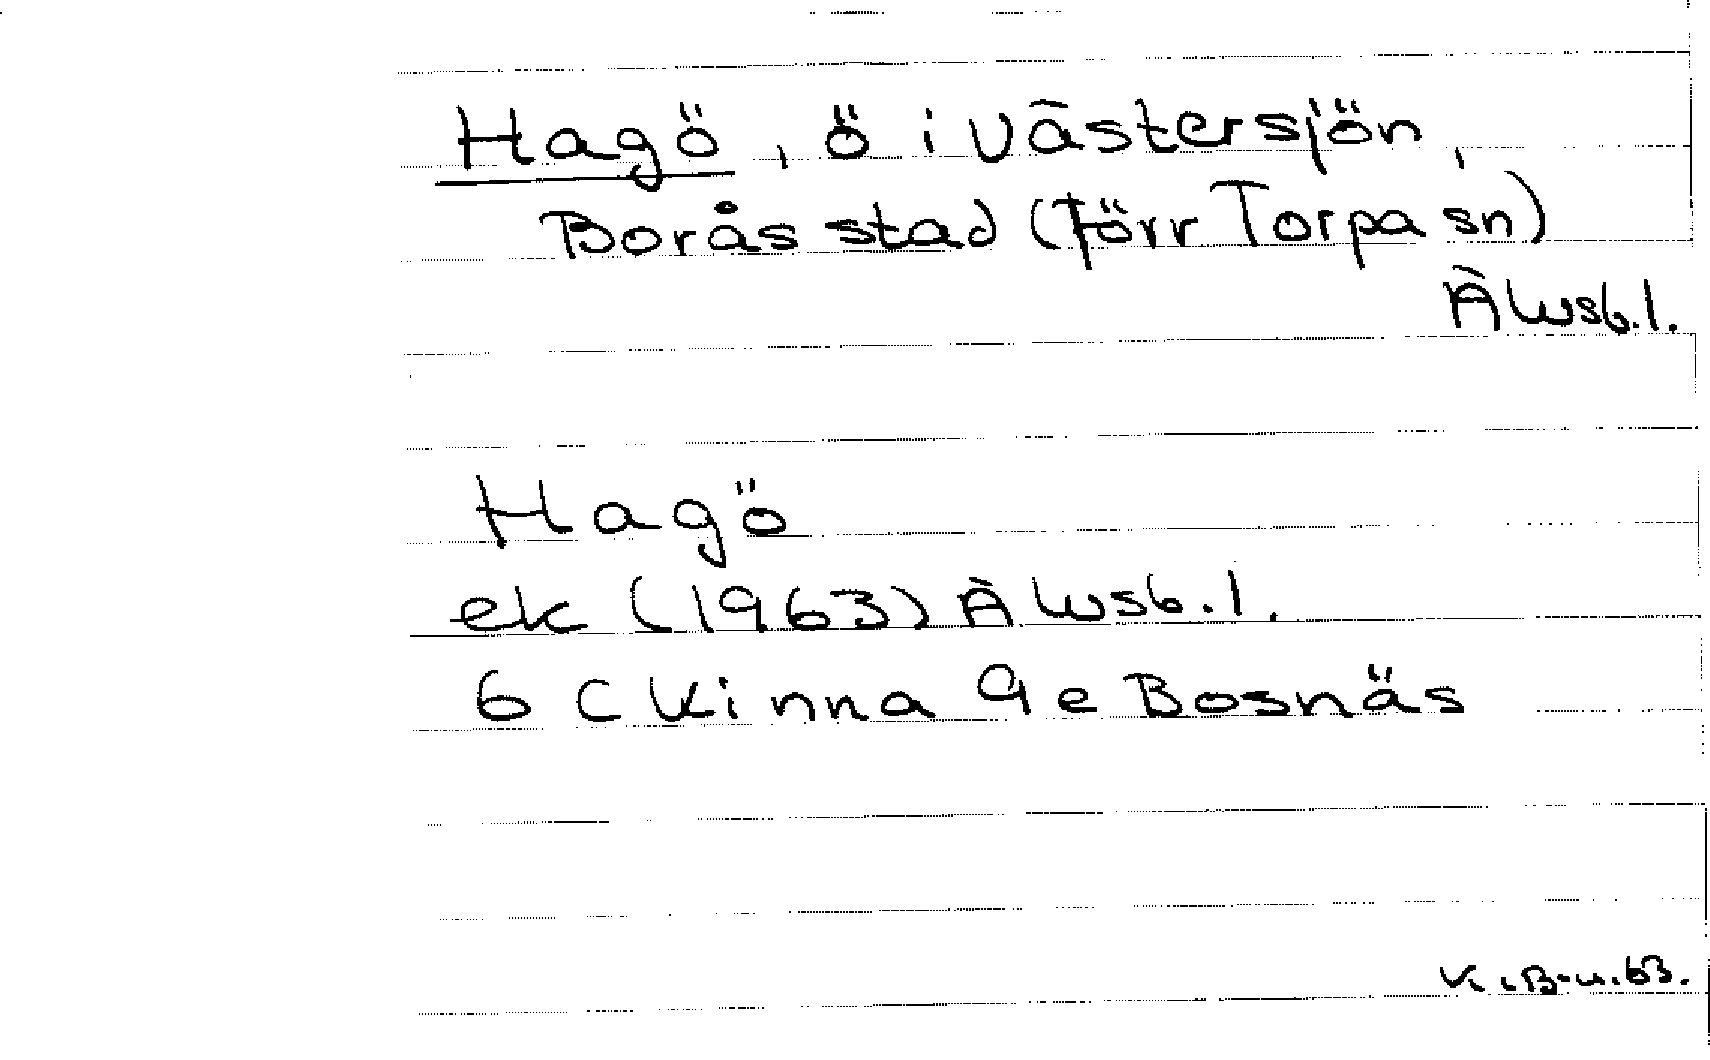 Hagö, ö i Västersjön,
Borås stad (förr Torpa sn)
Älvsb.l.
Hagö
ek (1963) Älvsb.l.
6 C Kinna 9 e Bosnäs
K.B-u.63.